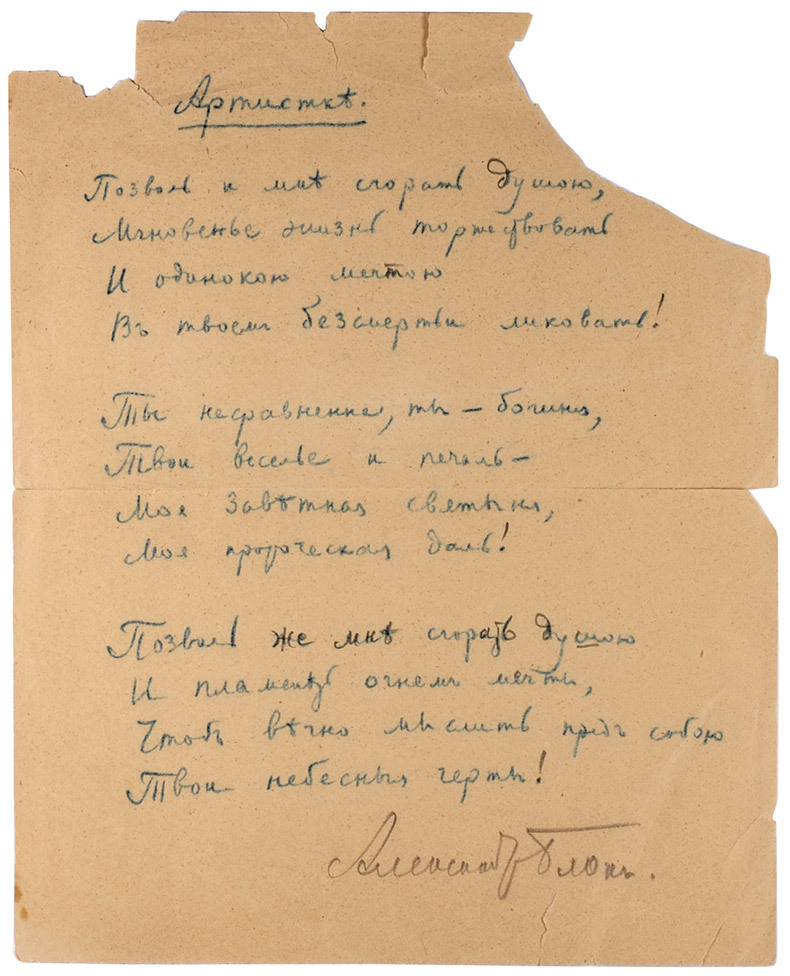 Артисткѣ.
Позволь и мнѣ сгорать душою,
Мгновенье жизнь торжествовать
И одинокою мечтою
Въ твоемъ безсмертьи ликовать!
Ты несравненна, ты – богиня,
Твои веселье и печаль –
Моя завѣтная святыня,
Моя пророческая даль!
Позволь же мнѣ сгорать душою
И пламенѣть огнемъ мечты,
Чтобъ вѣчно мыслить предъ собою
Твои небесныя черты!
Александръ Блокъ.